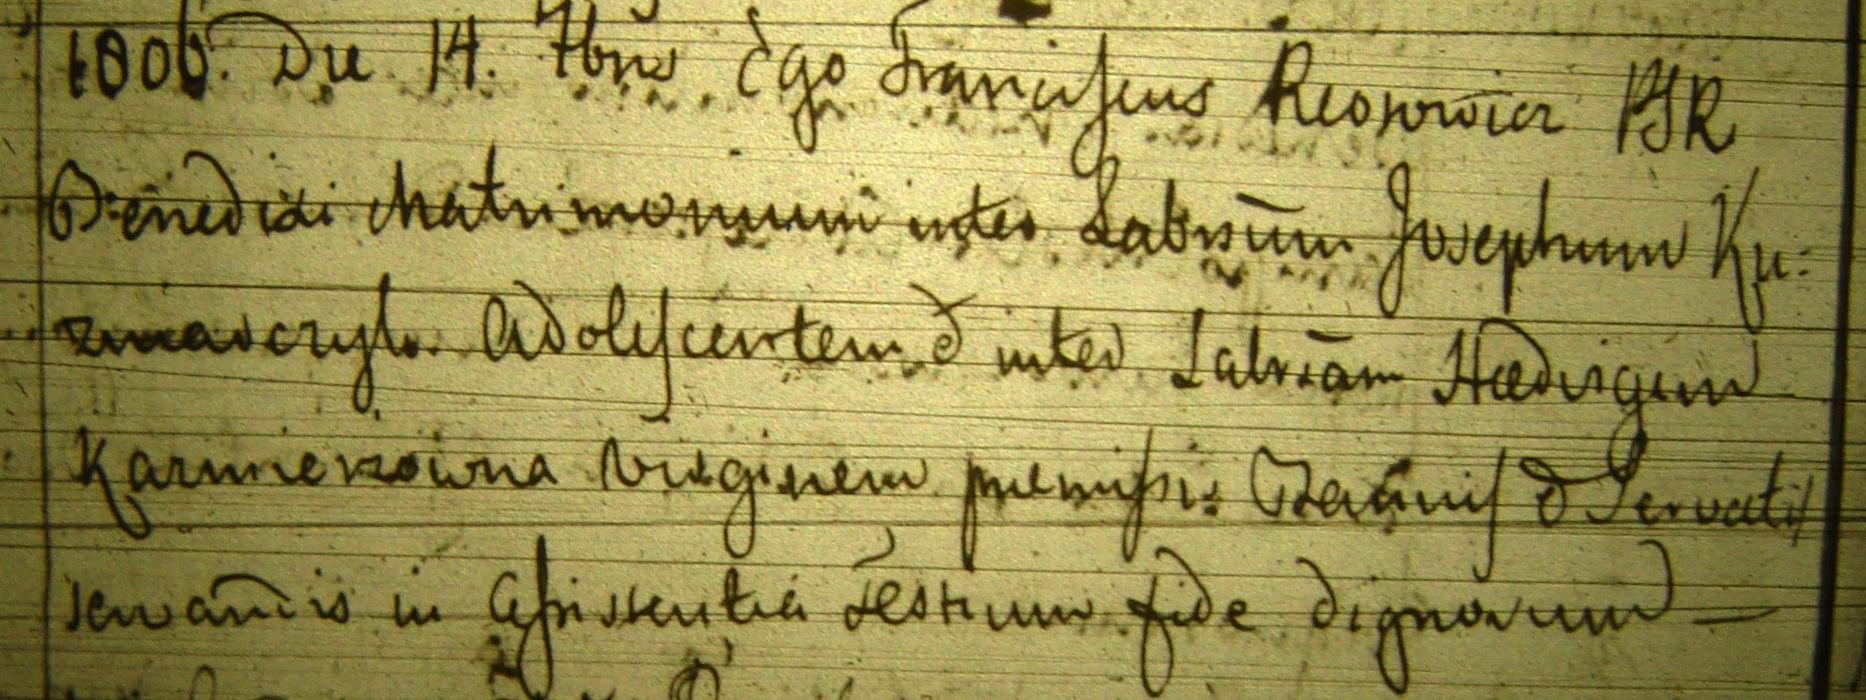 1806. Die 14. 7bris Ego Franciscus Reonowicz PSR
Benedixi Matrimonium inter Labrsum Josephum Ku:
zmaxczyk. Adolescentem & inter Labrsam Hædvigem
Kazmierzowna Virginem premissis Bannis & Servatis
servandis in Assistentia Testium fide dignorum —